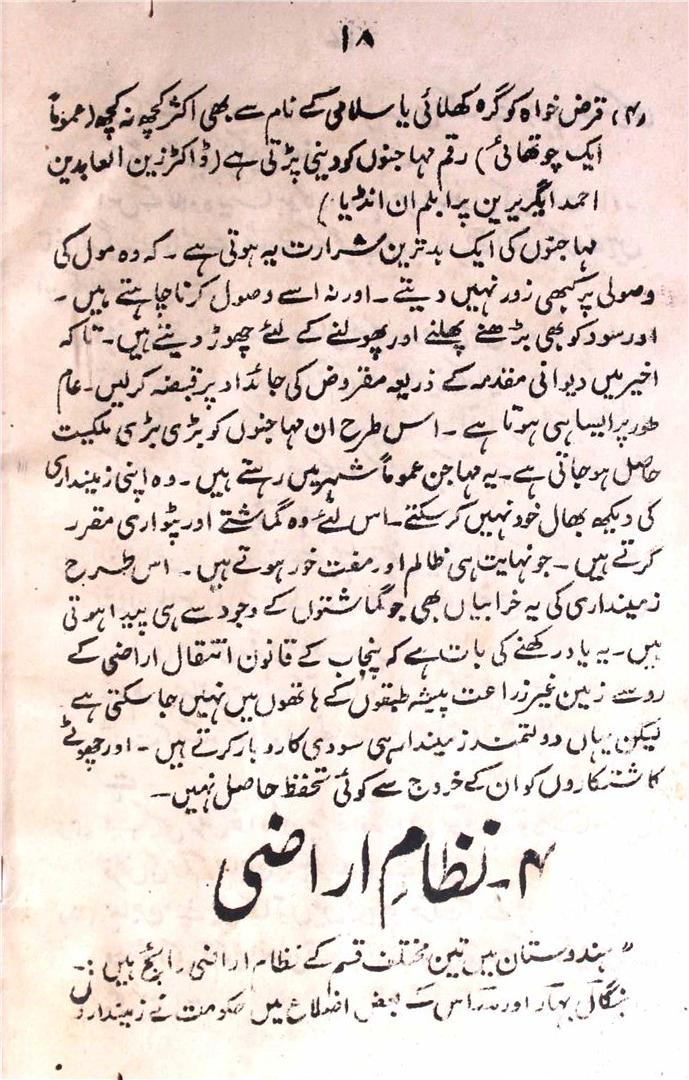 ۱۸
(۴) قرض خواہ کو گرہ کھلائی یا سلامی کے نام سے بھی اکثر کچھ نہ کچھ (عموماً
ایک چوتھائی) رقم مہاجنوں کو دینی پڑتی ہے (ڈاکٹر زین العابدین
احمد ایگریرین پرابلم ان انڈیا)
مہاجنوں کی ایک بدترین شرارت یہ ہوتی ہے ۔ کہ وہ مول کی
وصولی پر کبھی زور نہیں دیتے ۔ اور نہ اسے وصول کرنا چاہتے ہیں ۔
اور سود کو بھی بڑھنے پھلنے اور پھولنے کے لئے چھوڑ دیتے ہیں ۔ تاکہ
اخیر میں دیوانی مقدمہ کے ذریعہ مقروض کی جائداد پر قبضہ کر لیں ۔ عام
طور پر ایسا ہی ہوتا ہے ۔ اس طرح ان مہاجنوں کو بڑی بڑی ملکیت
حاصل ہو جاتی ہے ۔ یہ مہاجن عموماً شہر میں رہتے ہیں ۔ وہ اپنی زمینداری
کی دیکھ بھال خود نہیں کر سکتے ۔ اس لئے وہ گماشتے اور پٹواری مقرر
کرتے ہیں ۔ جو نہایت ہی ظالم اور مفت خور ہوتے ہیں ۔ اس طرح
زمینداری کی یہ خرابیاں بھی جو گماشتوں کے وجود سے ہی پیدا ہوتی
ہیں ۔ یہ یاد رکھنے کی بات ہے کہ پنجاب کے قانون انتقال اراضی کے
رو سے زمین غیر زراعت پیشہ طبقوں کے ہاتھوں میں نہیں جا سکتی ہے
لیکن یہاں دولتمند زمیندار ہی سودی کاروبار کرتے ہیں ۔ اور چھوٹے
کاشتکاروں کو ان کے خروج سے کوئی تحفظ حاصل نہیں ۔
۴۔ نظامِ اراضی
" ہندوستان میں تین مختلف قسم کے نظام اراضی رائج ہیں :۔
بنگال بہار اور مدراس کے بعض اضلاع میں حکومت نے زمینداروں